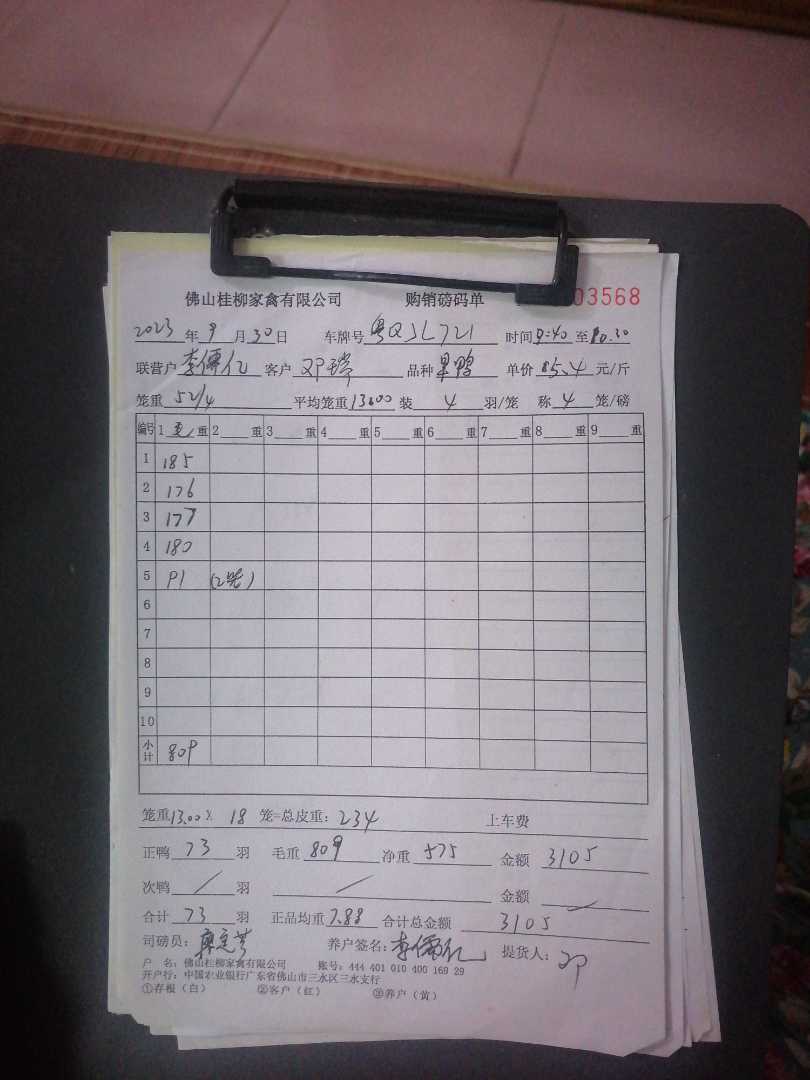 佛山桂柳家禽有限公司 购销磅码单 03568
2023年9月30日 车牌号粤QJL721 时间9:40至10.30
联营户 李 亿 客户 邓 品种 鸭 单价 5.4 元/斤
笼重52/4 平均笼重13.00装4羽/笼 称4笼/磅
编号 1 毛 重 2 重 3 重 4 重 5 重 6 重 7 重 8 重 9 重
1 185
2 176
3 177
4 180
5 91 (2笼)
6
7
8
9
10
小计 809
笼重13.00X 18笼=总皮重:234 上车费
正鸭73羽 毛重809净重575 金额3105
次鸭/羽 / 金额
合计73羽 正品均重7.88合计总金额3105
司磅员: 养户签名:李 亿 提货人:邓
户 名:佛山桂柳家禽有限公司 账号:444 401 010 400 169 29
开户行:中国农业银行广东省佛山市三水区三水支行
①存根(白) ②客户(红) ③养户(黄)